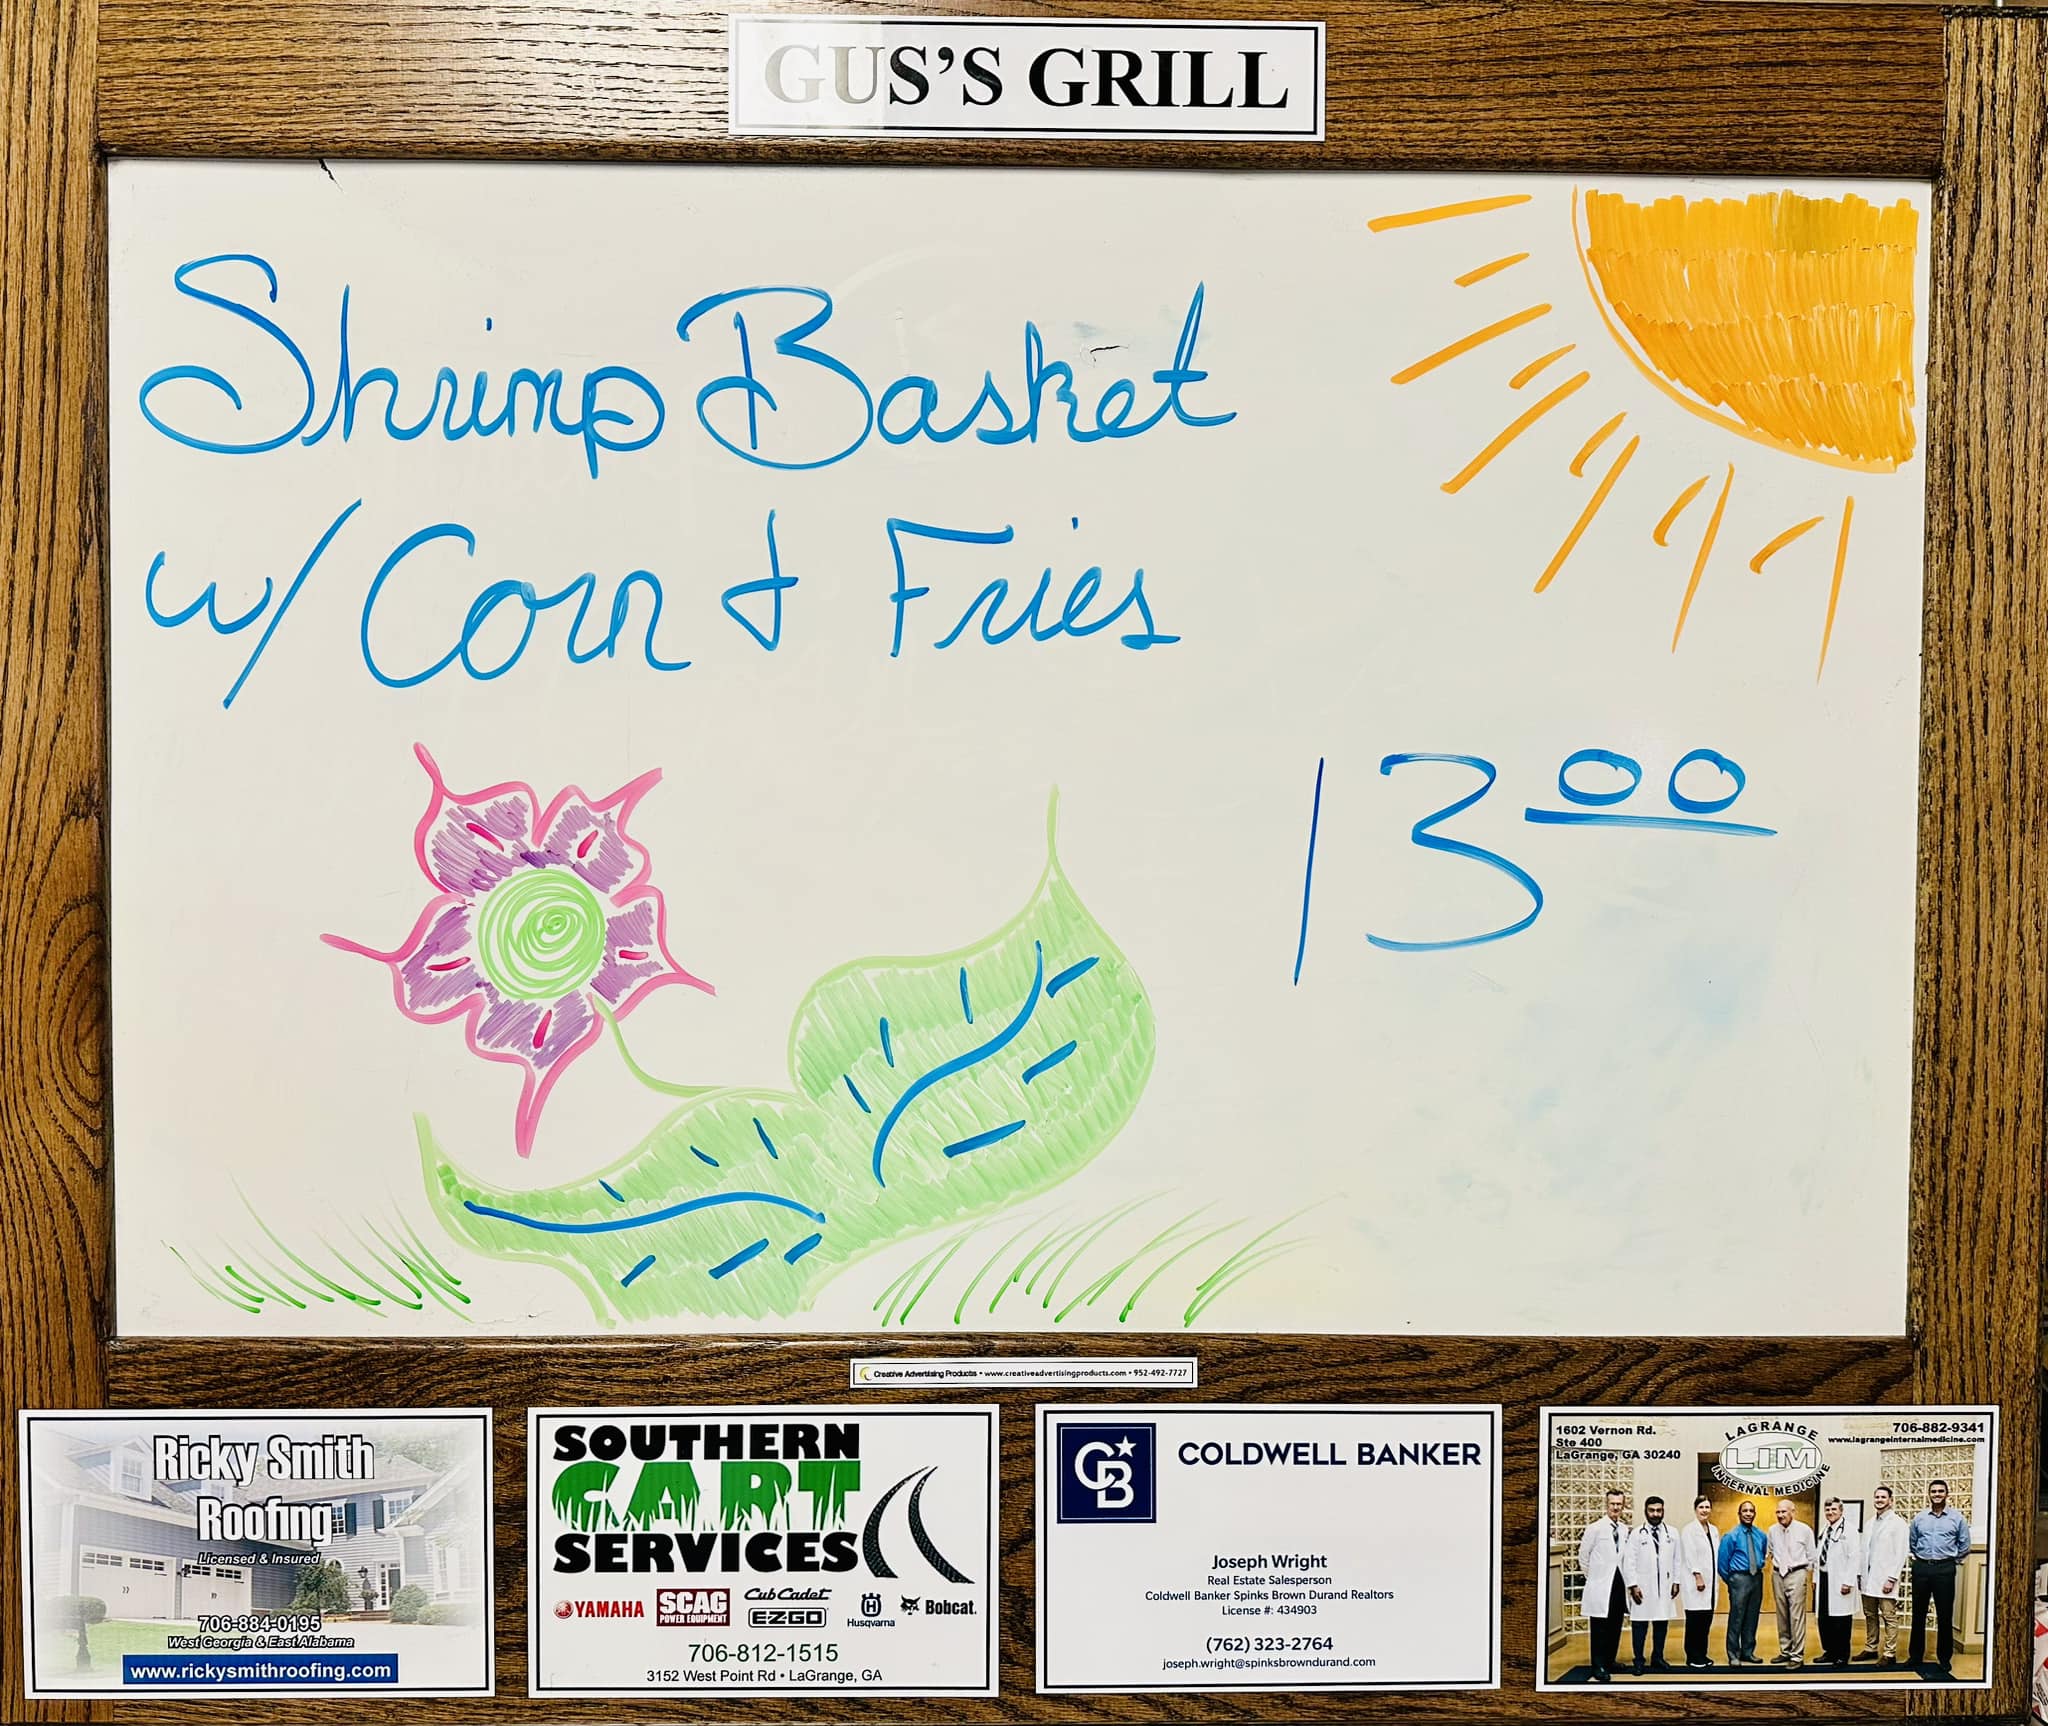 GUS'S GRILL
Shrimp Basket
w/ Corn & Fries
13.00
Creative Advertising Products • www.creativeadvertisingproducts.com • 952-492-7727
Ricky Smith
Roofing
Licensed & Insured
706-884-0195
West Georgia & East Alabama
www.rickysmithroofing.com
SOUTHERN
CART
SERVICES
YAMAHA
SCAG
POWER EQUIPMENT
Cub Cadet
E-Z-GO
Husqvarna
Bobcat.
706-812-1515
3152 West Point Rd • LaGrange, GA
CB
COLDWELL BANKER
Joseph Wright
Real Estate Salesperson
Coldwell Banker Spinks Brown Durand Realtors
License #: 434903
(762) 323-2764
joseph.wright@spinksbrowndurand.com
1602 Vernon Rd.
Ste 400
LaGrange, GA 30240
LAGRANGE
LIM
INTERNAL MEDICINE
706-882-9341
www.lagrangeinternalmedicine.com